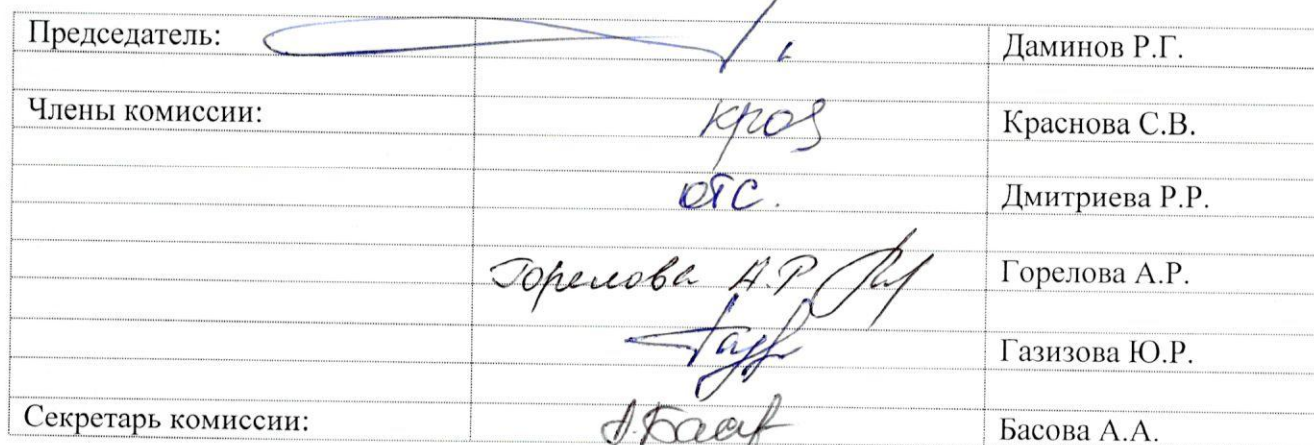 Председатель: Даминов Р.Г.
Члены комиссии: Краснова С.В.
отс. Дмитриева Р.Р.
Горелова А.Р Горелова А.Р.
Газизова Ю.Р.
Секретарь комиссии: Басова А.А.